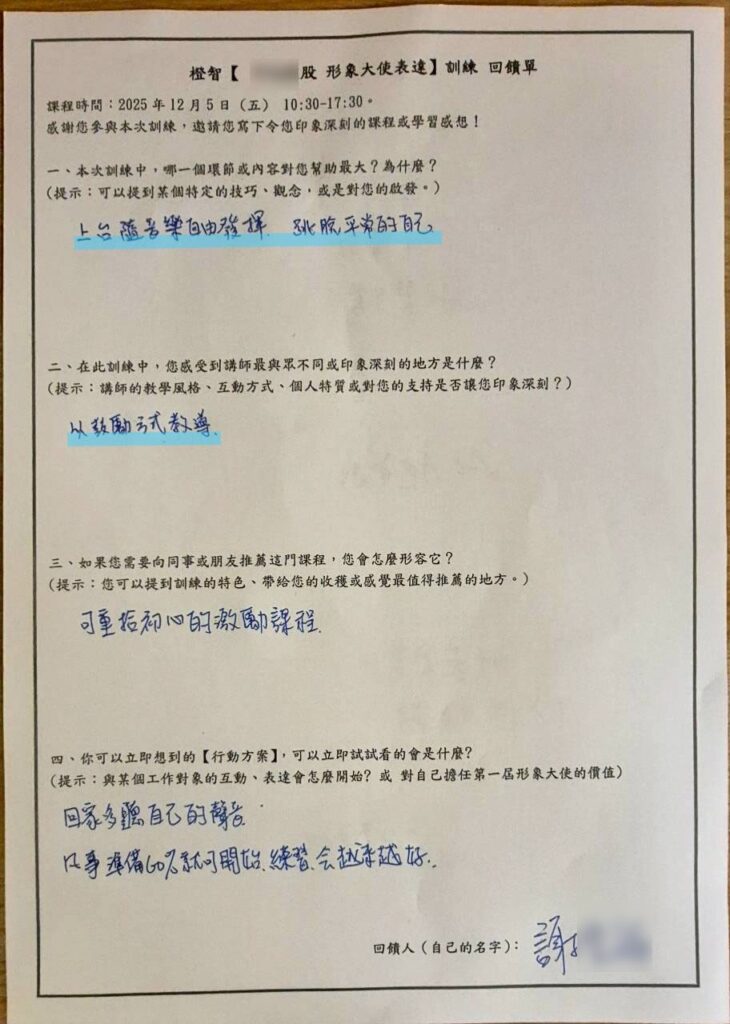 橙智【 股 形象大使表達】訓練 回饋單
課程時間：2025 年 12 月 5 日（五） 10:30-17:30。
感謝您參與本次訓練，邀請您寫下令您印象深刻的課程或學習感想！
一、本次訓練中，哪一個環節或內容對您幫助最大？為什麼？
(提示：可以提到某個特定的技巧、觀念，或是對您的啟發。)
上台隨音樂自由發揮. 跳脫平常的自己
二、在此訓練中，您感受到講師最與眾不同或印象深刻的地方是什麼？
(提示：講師的教學風格、互動方式、個人特質或對您的支持是否讓您印象深刻？)
以鼓勵方式教導.
三、如果您需要向同事或朋友推薦這門課程，您會怎麼形容它？
(提示：您可以提到訓練的特色、帶給您的收穫或感覺最值得推薦的地方。)
可重拾初心的激勵課程.
四、你可以立即想到的【行動方案】，可以立即試試看的會是什麼?
(提示：與某個工作對象的互動、表達會怎麼開始? 或 對自己擔任第一屆形象大使的價值)
回家多聽自己的聲音.
凡事準備60%就可開始.練習.会越来越好.
回饋人（自己的名字）： 謝